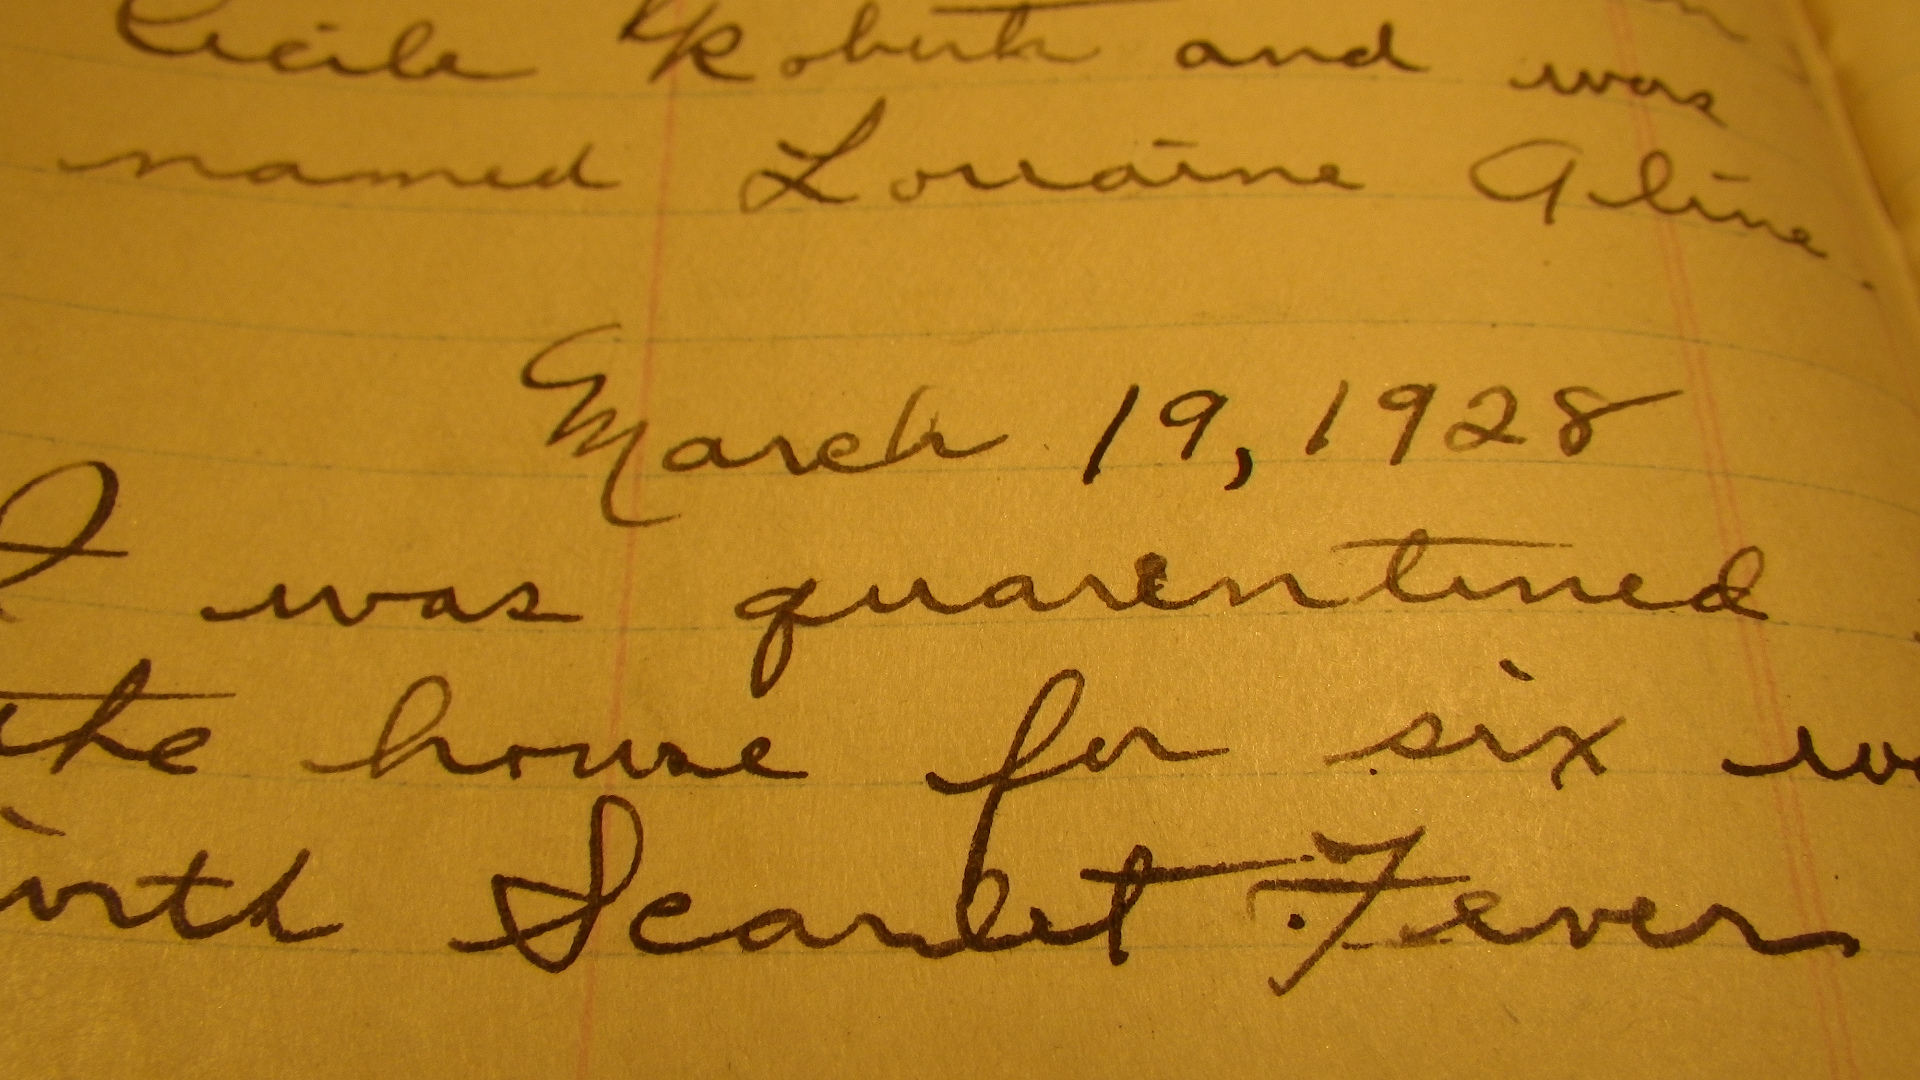 Cecile Roberta and was
named Lorraine Aline.
March 19, 1928
I was quarentined
the house for six
with Scarlet Fever